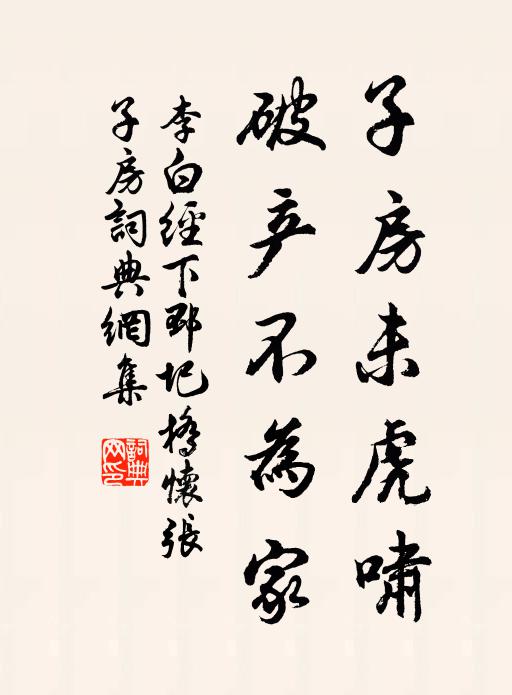 子房未虎嘯
破产不為家
李白經下邳圯橋懷張
子房詞典網集
詞典
网印